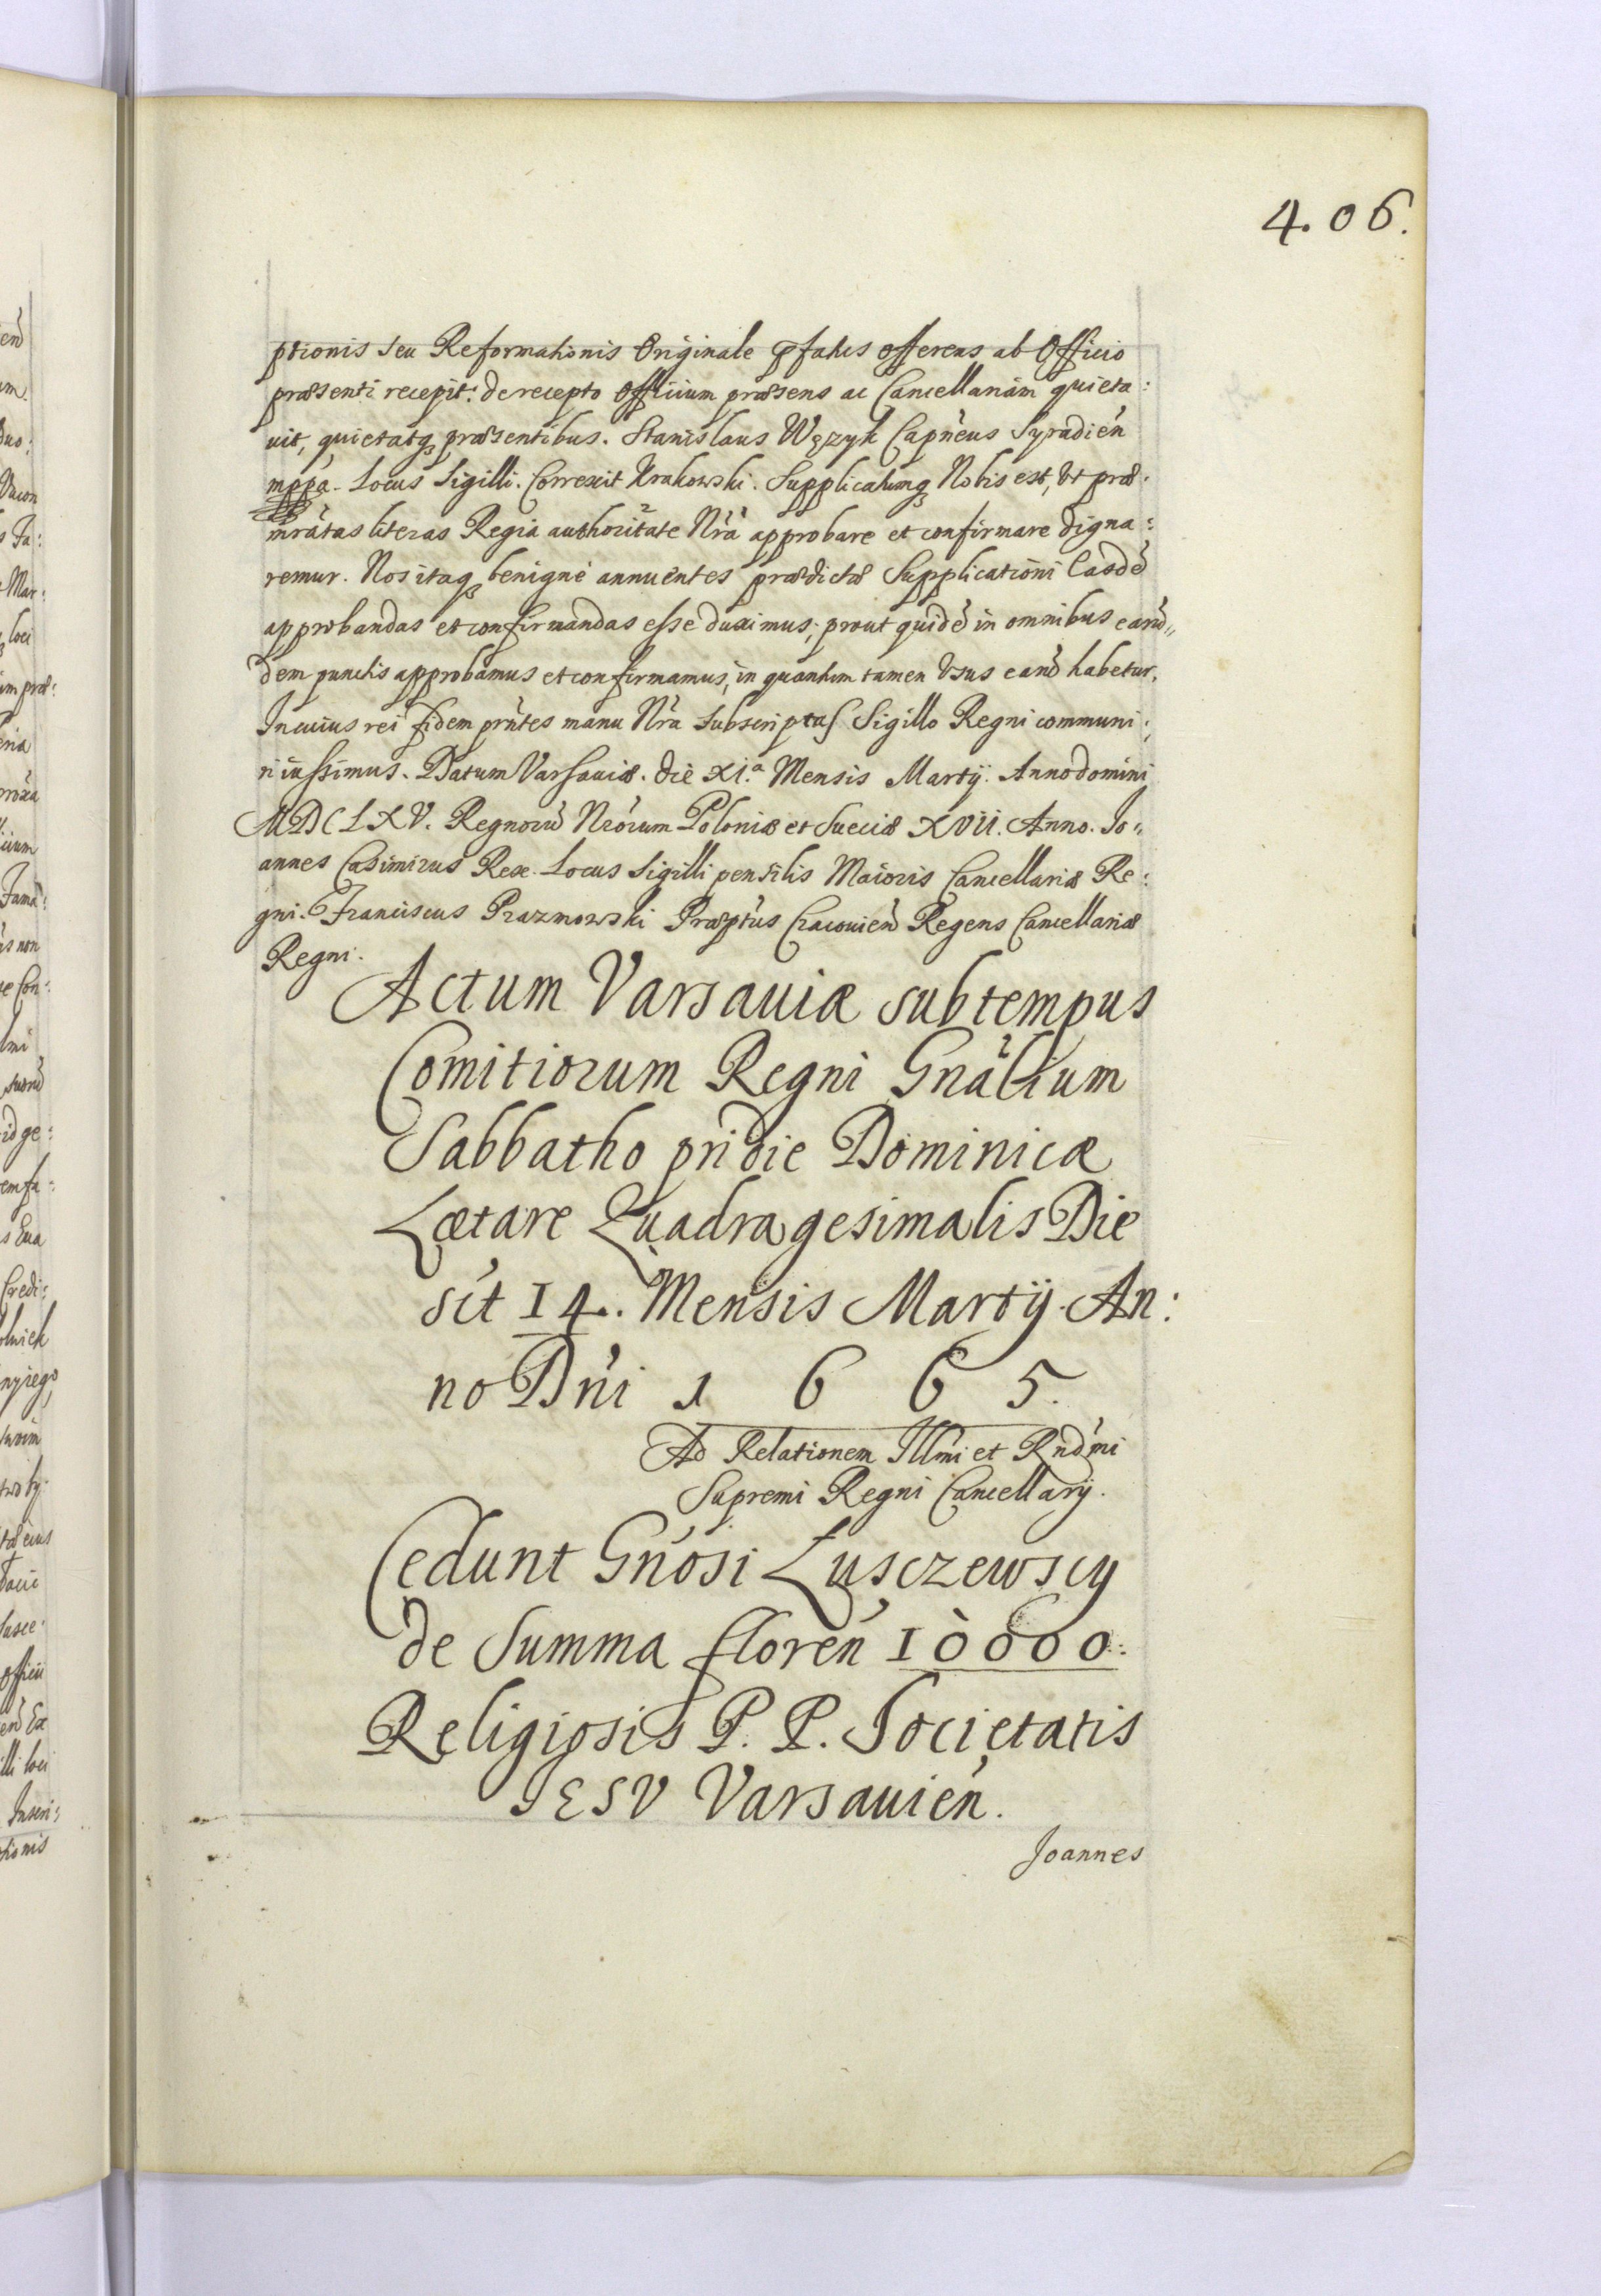 4.06.
ptionis seu Reformationis Originale pfatus offerens ab Officio
præsenti recepit: de recepto Officium præsens ac Cancellariam quieta:
uit, quietatq præsentibus. Stanislaus Wężyk Capneus Syradien
mppa. Locus Sigilli. Correxit Krakowski. Supplicatumq Nobis est, Vt præ:
mratas literas Regia authoritate Nra approbare et confirmare digna:
remur. Nos itaq benigne annuentes prædictæ Supplicationi Easde
approbandas et confirmandas esse duximus; prout quide in omnibus earu„
dem punctis approbamus et confirmamus, in quantum tamen Vsus earu habetur.
In cuius rei fidem prntes manu Nra Subscriptas Sigillo Regni communi:
ri iussimus. Datum Varsauiæ. die XI.a Mensis Martij. Anno domini
MDCLXV. Regnoru Nrorum Poloniæ et Sueciæ XVII. Anno. Jo„
annes Casimirus Rex. Locus Sigilli pensilis Maioris Cancellariæ Re:
gni. Franciscus Prazmowski Præptus Cracouien Regens Cancellariæ
Regni.
Actum Varsauiæ sub tempus
Comitiorum Regni Gnalium
Sabbatho pridie Dominicæ
Lætare Quadragesimalis Die
sit 14. Mensis Martij. An:
no Dni 1 6 6 5.
Ad Relationem Illmi et Rndmi
Supremi Regni Cancellarij.
Cedunt Gnosi Łusczewscy
de Summa floren 10000.
Religiosis P. P. Societatis
IESV Varsauien.
Joannes